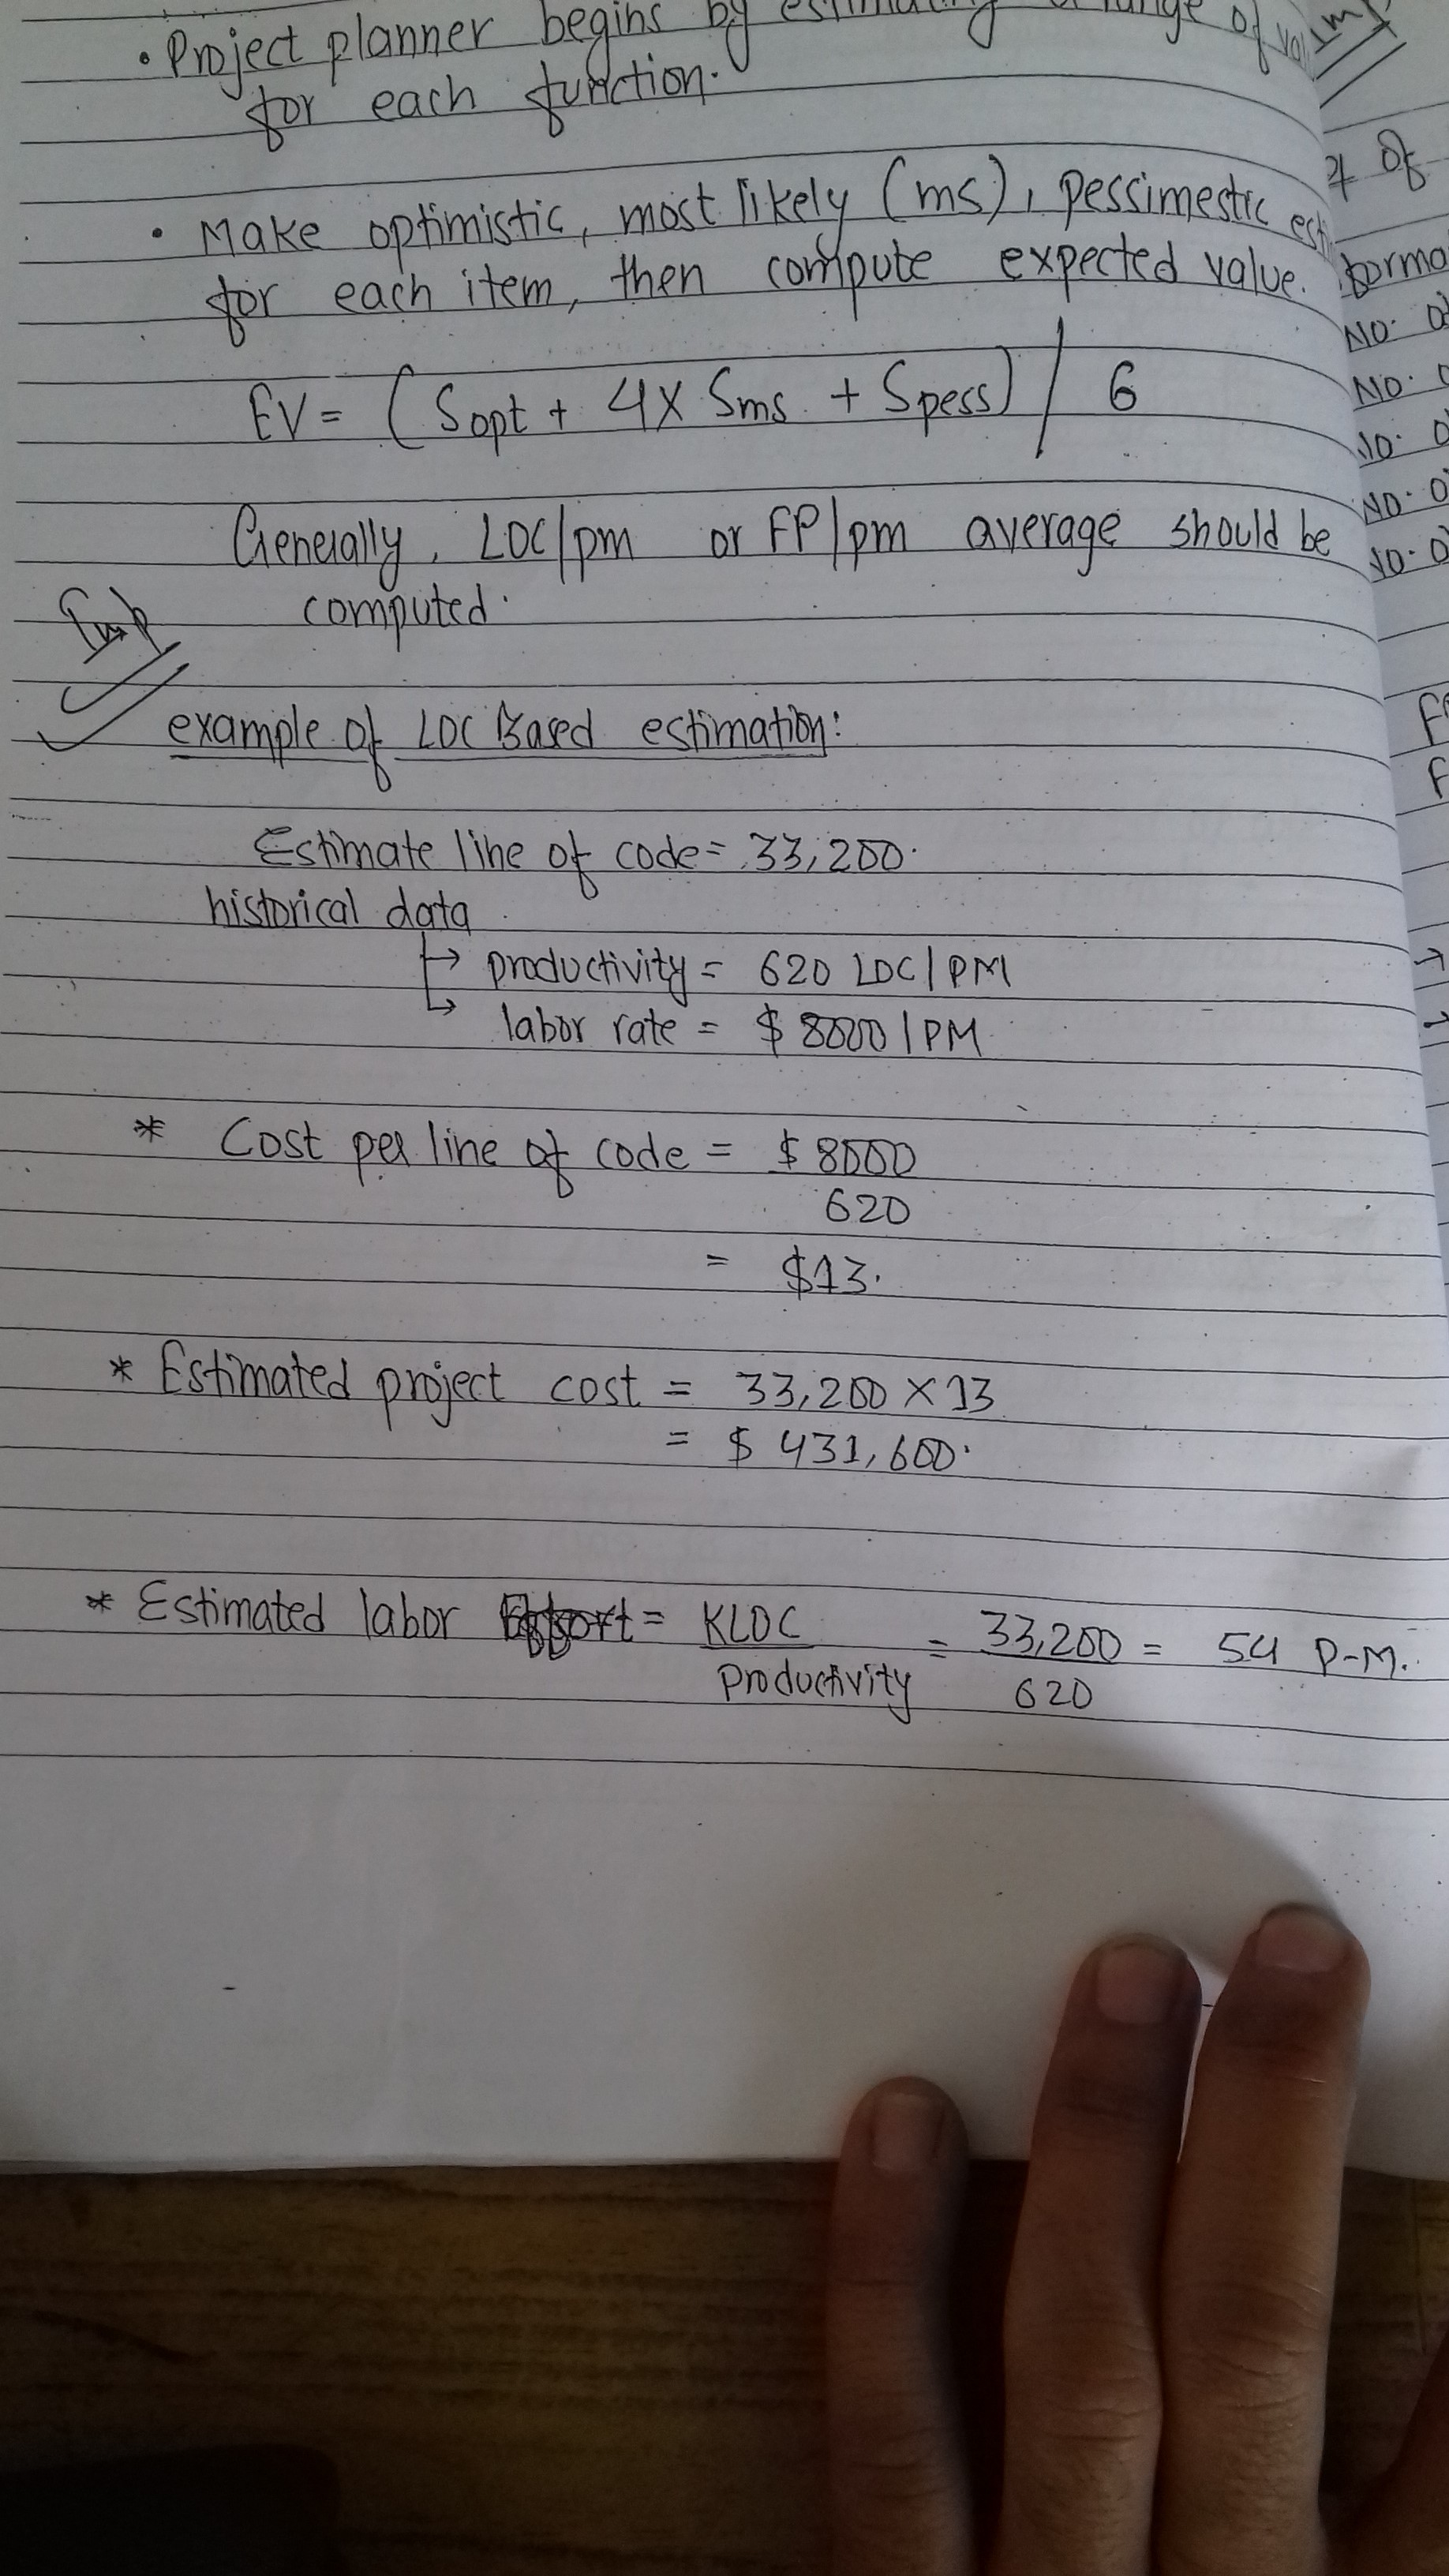 • Project planner begins by estimating a range of
for each function.
• Make optimistic, most likely (ms), pessimestic
for each item, then compute expected value.
EV = (Sopt + 4 x Sms + Spess) / 6
Generally, LOC/pm or FP/pm average should be
computed.
Imp
example of LOC Based estimation:
Estimate line of code = 33,200.
historical data
→ productivity = 620 LOC/PM
→ labor rate = $ 8000 / PM
* Cost per line of code = $ 8000
620
= $13.
* Estimated project cost = 33,200 x 13
= $ 431,600.
* Estimated labor Effort = KLOC = 33,200 = 54 P-M.
Productivity 620
Imp
of
NO.
NO.
NO.
NO.
NO.